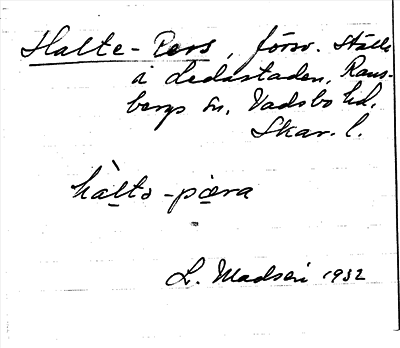 Halte-Pers, försv. ställe
å Ledästaden, Rans-
bergs sn, Vadsbo hd,
Skar. l.
hàltə-pæra
L. Madsén 1932